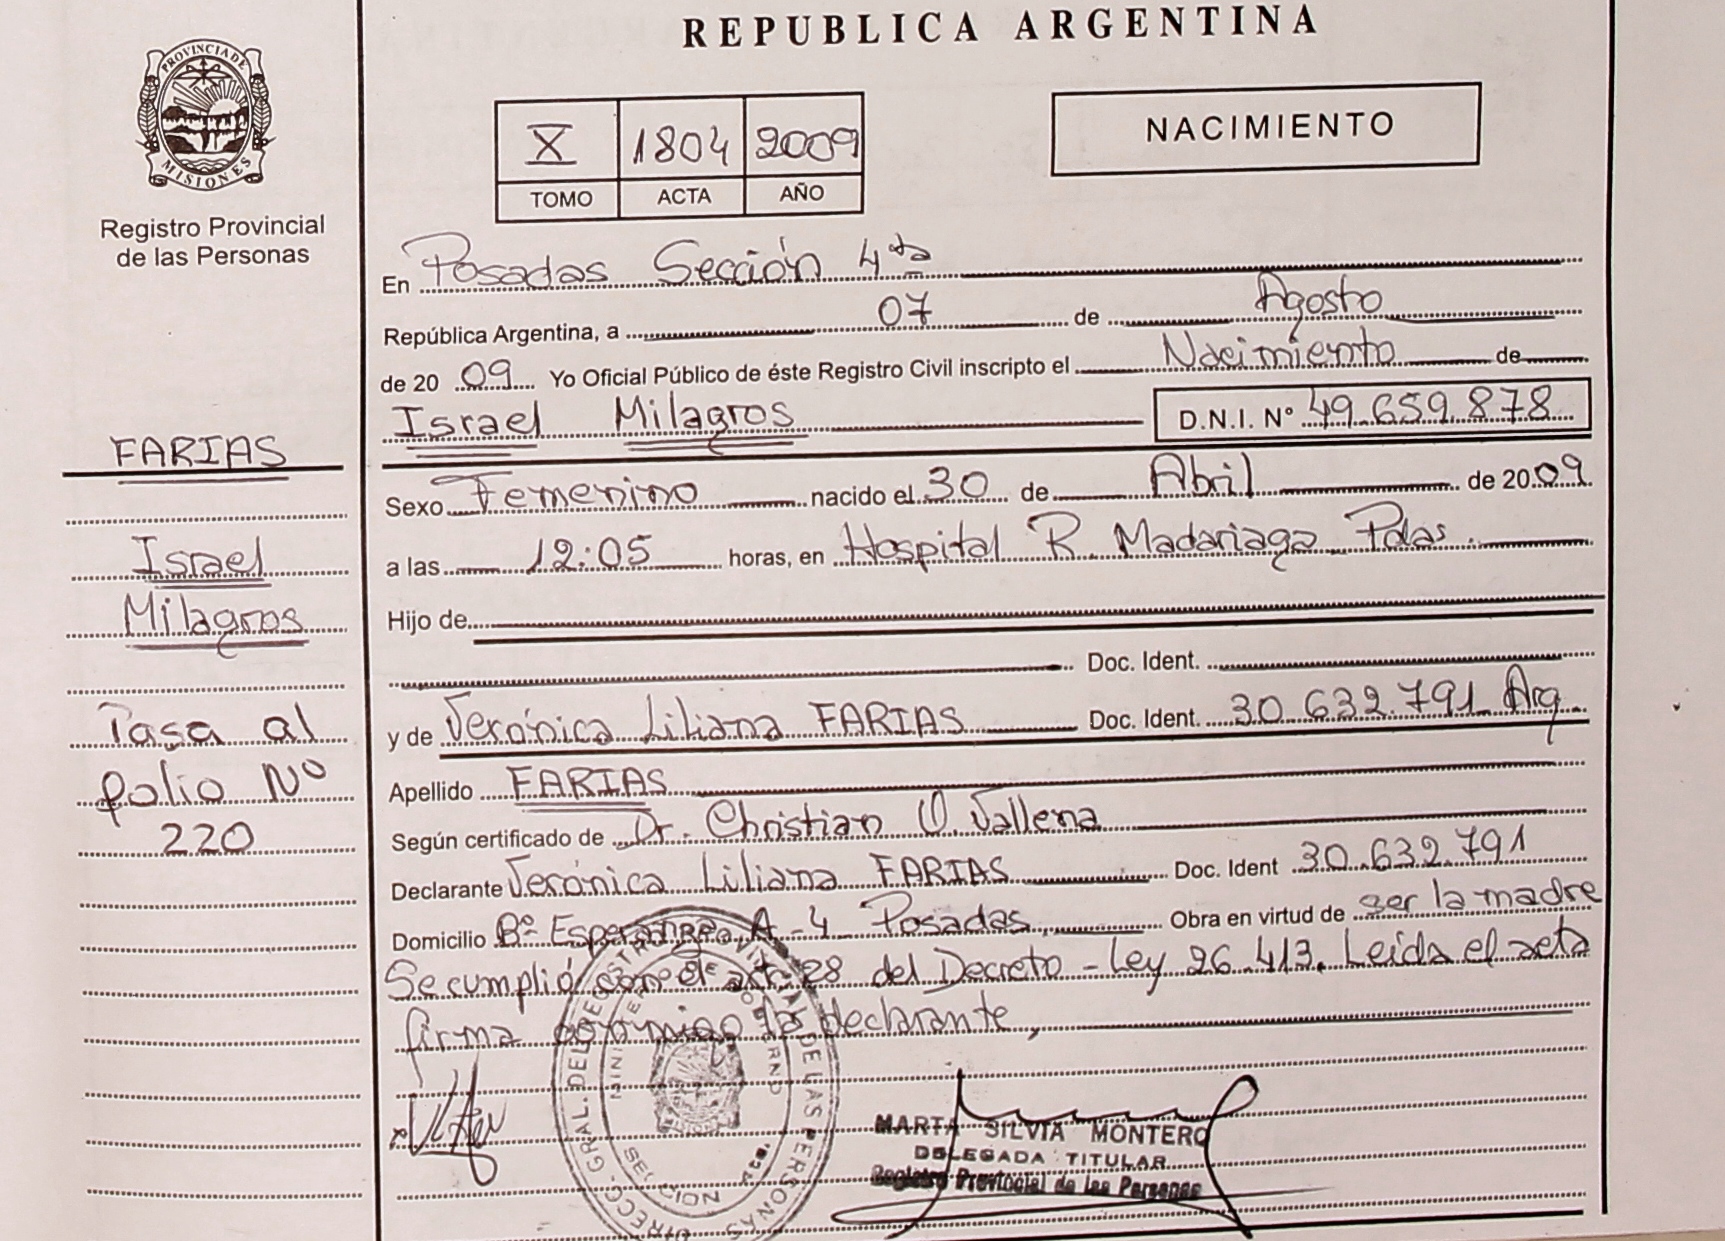 REPUBLICA ARGENTINA
PROVINCIA DE
MISIONES
Registro Provincial
de las Personas
X 1804 2009
TOMO ACTA AÑO
NACIMIENTO
En Posadas Sección 4ta
República Argentina, a 07 de Agosto
de 2009 Yo Oficial Público de éste Registro Civil inscripto el Nacimiento de
Israel Milagros D.N.I. N° 49.659.878
Sexo Femenino nacido el 30 de Abril de 2009
a las 12:05 horas, en Hospital R. Madariaga Pdas.
Hijo de
Doc. Ident.
y de Verónica Liliana FARIAS Doc. Ident. 30.632.791 Arg
Apellido FARIAS
Según certificado de Dr. Christian O. Vallena
Declarante Verónica Liliana FARIAS Doc. Ident 30.632.791
Domicilio Bº Esperanza A-4 Posadas, Obra en virtud de ser la madre
Se cumplió con el art. 28 del Decreto - Ley 26.413. Leída el acta
firma conmigo la declarante,
FARIAS
Israel
Milagros
Pasa al
folio Nº
220
MARTA SILVIA MONTERO
DELEGADA TITULAR
Registro Provincial de las Personas